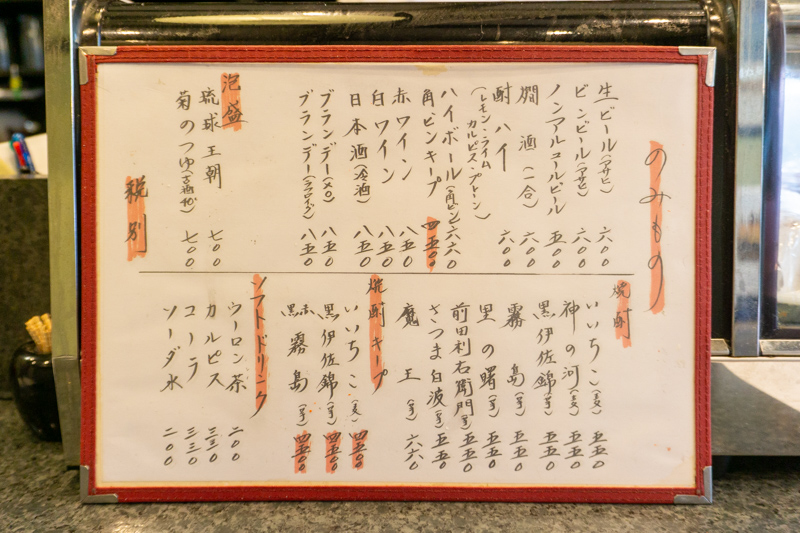 のみもの
生ビール(アサヒ) 六〇〇
ビンビール(アサヒ) 六〇〇
ノンアルコールビール 五〇〇
燗酒(一合) 六〇〇
酎ハイ 六〇〇
(レモン・ライム
カルピス・プレーン)
ハイボール(角ビン) 六六〇
角ビンキープ 四五〇〇
赤ワイン 八五〇
白ワイン 八五〇
日本酒(冷酒) 八五〇
ブランデー(XO) 八五〇
ブランデー 八五〇
泡盛
琉球王朝 七〇〇
菊のつゆ(古酒40°) 七〇〇
税別
焼酎
いいちこ(麦) 五五〇
神の河(麦) 五五〇
黒伊佐錦(芋) 五五〇
霧島(芋) 五五〇
里の曙 五五〇
前田利右衛門(芋) 五五〇
さつま白波(芋) 五五〇
魔王(芋) 六六〇
焼酎キープ
いいちこ(麦) 四五〇〇
黒伊佐錦(芋) 四五〇〇
黒赤霧島(芋) 四五〇〇
ソフトドリンク
ウーロン茶 二〇〇
カルピス 三三〇
コーラ 三三〇
ソーダ水 二〇〇